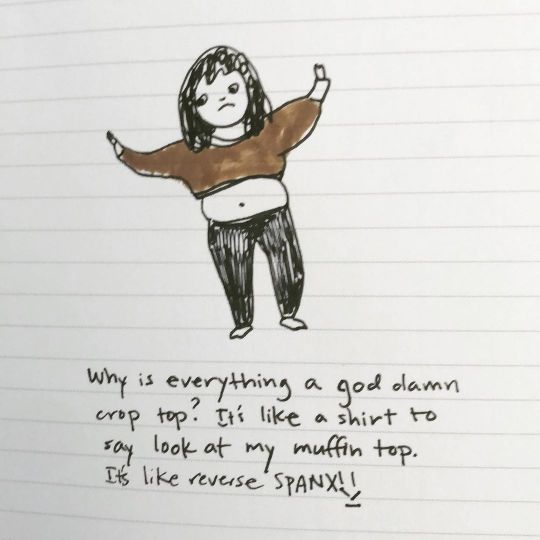 Why is everything a god damn
crop top? It's like a shirt to
say look at my muffin top.
It's like reverse SPANX!!